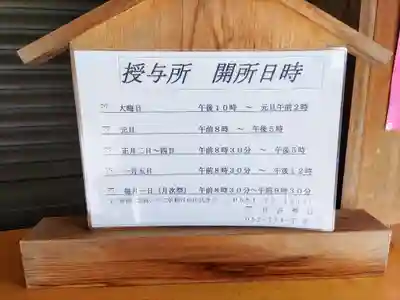 授与所 開所日時
大晦日 午後10時 ～ 元旦午前2時
元日 午前8時 ～ 午後5時
正月二日～四日 午前8時30分 ～ 午後5時
一月五日 午前8時30分 ～ 午後12時
毎月一日（月次祭） 午前8時30分～午前9時30分